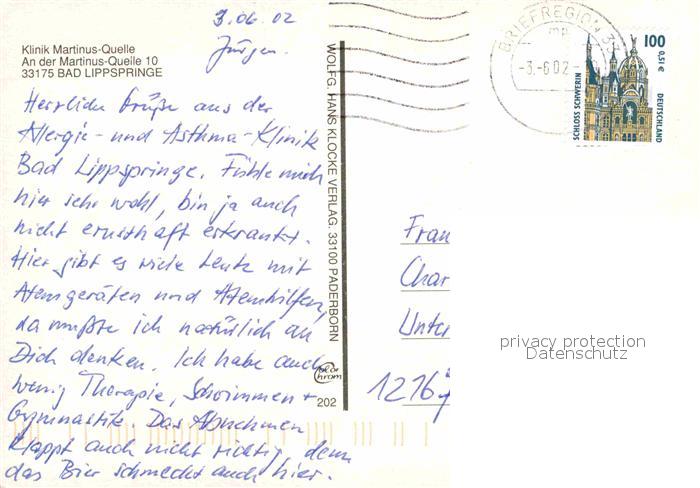 3.06.02
Jürgen.
Klinik Martinus-Quelle
An der Martinus-Quelle 10
33175 BAD LIPPSPRINGE
Herzliche Grüße aus der
Allergie- und Asthma-Klinik
Bad Lippspringe. Fühle mich
hier sehr wohl, bin ja auch
nicht ernsthaft erkrankt.
Hier gibt es viele Leute mit
Atemgeräten und Atemhilfen,
da mußte ich natürlich an
Dich denken. Ich habe auch
wenig Therapie, Schwimmen +
Gymnastik. Das Abnehmen
klappt auch nicht richtig, denn
das Bier schmeckt auch hier.
WOLFG. HANS KLOCKE VERLAG. 33100 PADERBORN
202
BRIEFREGION 33
mp
-3.-6.02-
100
0,51€
SCHLOSS SCHWERIN
DEUTSCHLAND
Frau
Char
Unter
1216
privacy protection
Datenschutz